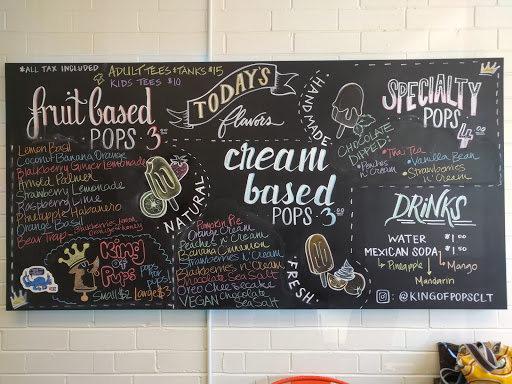 *ALL TAX INCLUDED
ADULT TEES & TANKS $15
KIDS TEES $10
fruit based
POPS 3.00
Lemon Basil
Coconut Banana Orange
Blackberry Ginger Lemonade
Arnold Palmer
Strawberry Lemonade
Raspberry Lime
Pineapple Habanero
Orange Basil
Bear Trap:
King of Pops
pops for pups!
Small $2 Large $3
TODAY'S
flavors
HANDMADE
NATURAL
FRESH
cream
based
POPS 3.00
Pumpkin Pie
Orange Cream
Peaches n' Cream
Banana Cinnamon
Strawberries n' Cream
Blackberries n' Cream
Chocolate Sea Salt
Oreo Cheesecake
VEGAN Chocolate
Sea Salt
SPECIALTY
POPS 4.00
CHOCOLATE
DIPPED:
Peaches
n' Cream
Thai Tea
Vanilla Bean
Strawberries
n' Cream
DRINKS
WATER $1.00
MEXICAN SODA $1.50
Pineapple
Mango
Mandarin
: @KINGOFPOPSCLT